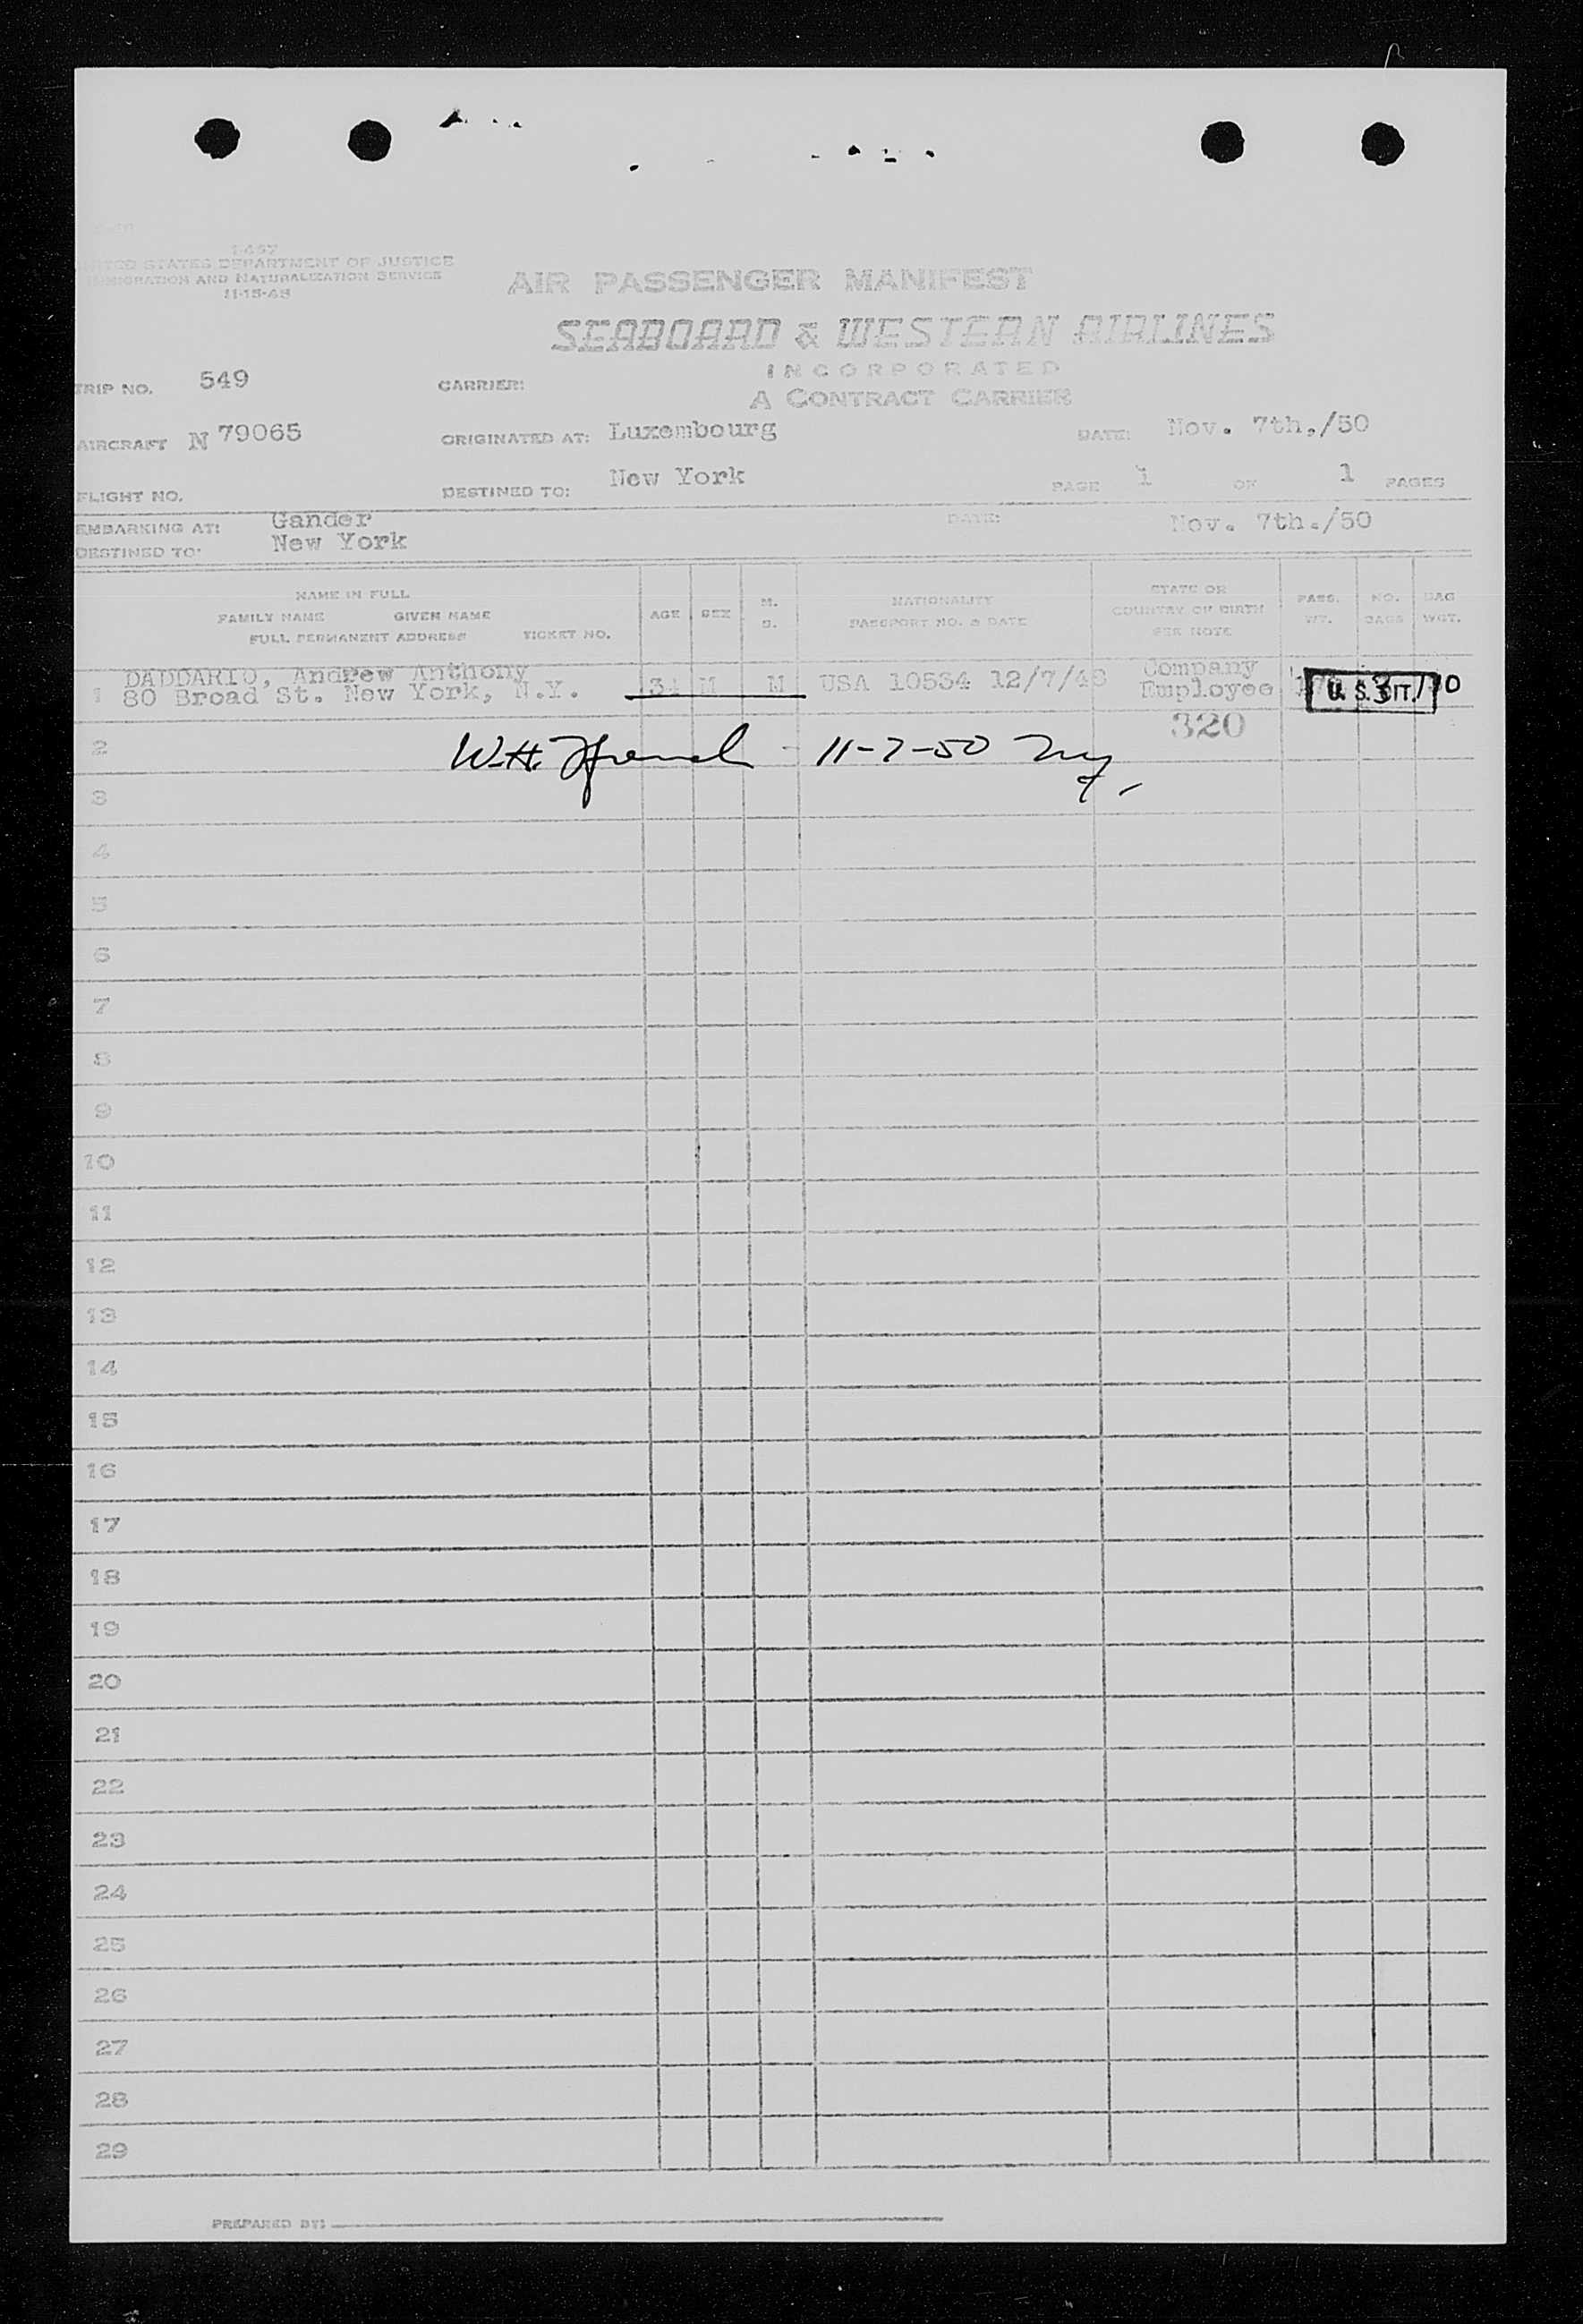 I-467
UNITED STATES DEPARTMENT OF JUSTICE
IMMIGRATION AND NATURALIZATION SERVICE
11-15-48
AIR PASSENGER MANIFEST
SEABOARD & WESTERN AIRLINES
INCORPORATED
A CONTRACT CARRIER
TRIP NO. 549 CARRIER:
AIRCRAFT N 79065 ORIGINATED AT: Luxembourg DATE: Nov. 7th,/50
FLIGHT NO. DESTINED TO: New York PAGE 1 OF 1 PAGES
EMBARKING AT: Gander DATE: Nov. 7th./50
DESTINED TO: New York
NAME IN FULL
FAMILY NAME GIVEN NAME
FULL PERMANENT ADDRESS TICKET NO.
AGE
SEX
M.
S.
NATIONALITY
PASSPORT NO. & DATE
STATE OR
COUNTRY OF BIRTH
SEE NOTE
PASS.
WT.
NO.
BAGS
BAG
WGT.
1 DADDARIO, Andrew Anthony
80 Broad St. New York, N.Y. 34 M M USA 10534 12/7/48 Company
Employee
U. S. CIT.
320
2 W.H. French - 11-7-50 NY
3
4
5
6
7
8
9
10
11
12
13
14
15
16
17
18
19
20
21
22
23
24
25
26
27
28
29
PREPARED BY: